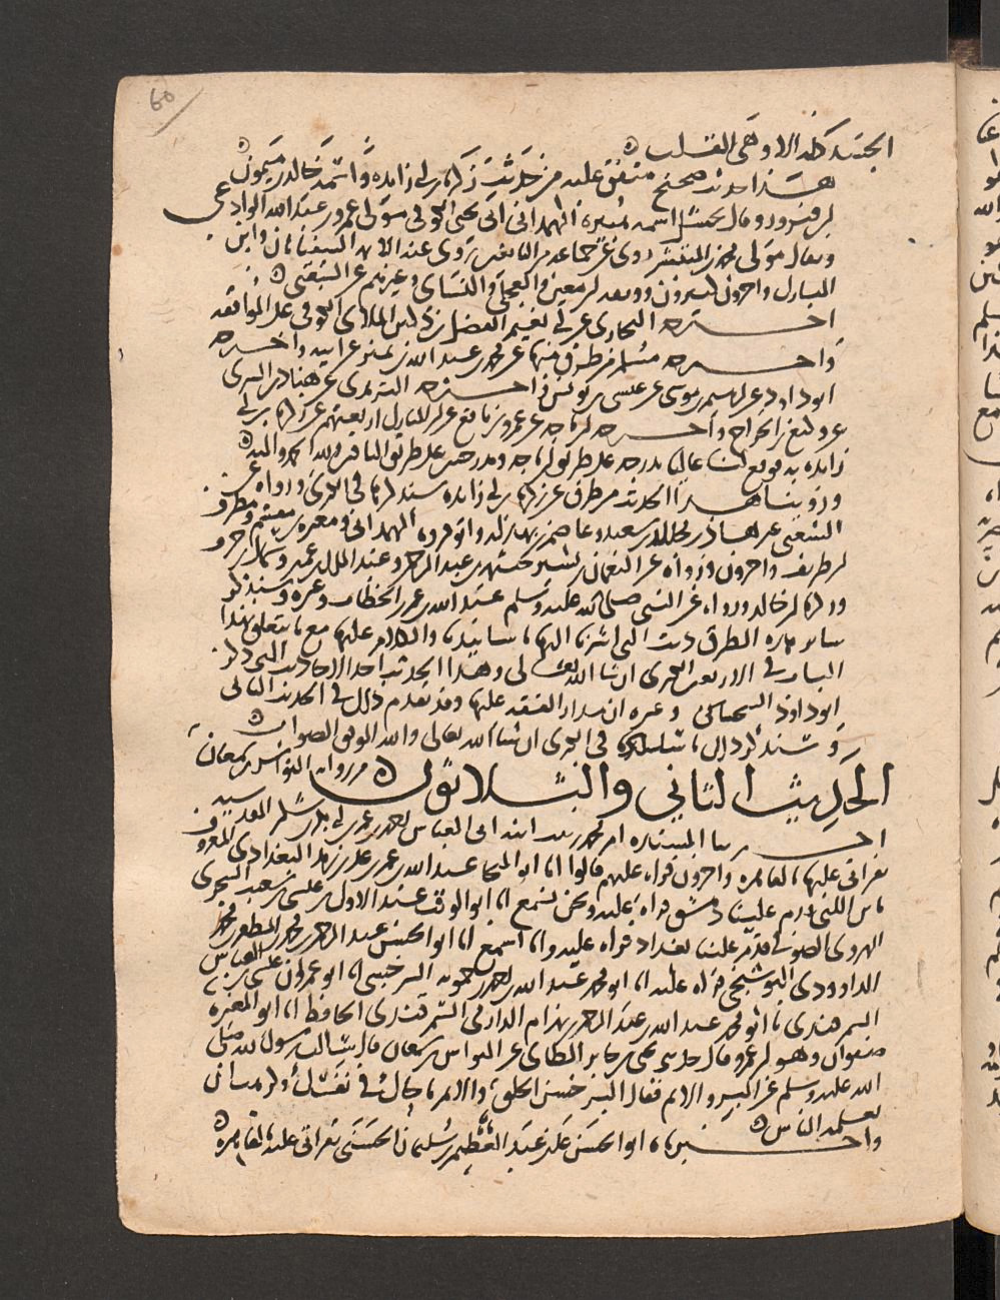 60
الجسد كله الا وهي القلب
هذا حديث صحيح متفق عليه من حديث زكريا بن ابي زايده واسمه خالد بن ميمون
بن فيروز وقال بحشل اسمه هبيرة الهمداني ابي يحيى الكوفي مولى عمرو بن عبد الله الوادعي
ويقال مولى محمد بن المنتشر روى عن جماعة من التابعين روى عنه الايمه السفيانان وابن
المبارك واخرون كثيرون ووثقه ابن معين والعجلي والنسائي وغيرهم عن الشعبي
اخرجه البخاري عن ابي نعيم الفضل بن دكين الملائي الكوفي على الموافقه
واخرجه مسلم من طرق منها عن محمد بن عبد الله بن نمير عن ابيه واخرجه
ابو داود عن ابراهيم بن موسى عن عيسى بن يونس واخرجه الترمذي عن هناد بن السري
عن وكيع بن الجراح واخرجه ابن ماجه عن عمرو بن رافع عن ابن المبارك اربعتهم عن زكريا بن ابي
زايده به فوقع لنا عاليا بدرجه على طريق ابن ماجه وبدرجتين على طريق الباقين ولله الحمد والمنه
وروينا هذا الحديث من طرق عن زكريا بن ابي زايده سنذكرها في الكبرى ورواه عن
الشعبي غير هذا مجالد بن سعيد وعاصم بن بهدله وابو فروه الهمداني ومغيره بن مقسم ومطرف
بن طريف واخرون ورواه عن النعمان بن بشير خيثمه بن عبد الرحمن وعبد الملك بن عمير وسماك بن حرب
ورواه عن النبي صلى الله عليه وسلم عبد الله بن عمر بن الخطاب وغيره وسنذكر
ساير هذه الطرق حيث التي اشرنا اليها باسانيدها والكلام عليها مع ما يتعلق بهذا
الباب في الاربعين الكبرى ان شا الله تعالى وهذا الحديث احد الاحاديث التي ذكر
ابو داود السجستاني وغيره ان مدار الفقه عليها وقد تقدم ذلك في الحديث الثاني
وسنذكر ذلك في الكبرى ان شا الله تعالى والله الموفق للصواب
الحديث الثاني والثلاثون من رواية النواس بن سمعان
اخبرتنا المسنده ام محمد زينب ابنه ابي العباس احمد بن عمر بن ابي بكر بن شكر المقدسيه
بقراتي عليها بالقاهره واخرون قراه عليهم قالوا انا ابو المنجا عبد الله بن عمر بن علي بن زيد البغدادي المعروف
بابن اللتي قدم علينا دمشق قراه عليه ونحن نسمع انا ابو الوقت عبد الاول بن عيسى بن شعيب السجزي
الهروي الصوفي قدم علينا بغداد قراه عليه وانا اسمع انا ابو الحسن عبد الرحمن بن محمد بن المظفر بن محمد
الداوودي البوشنجي قراه عليه انا ابو محمد عبد الله بن احمد بن حمويه السرخسي انا ابو عمران عيسى بن العباس
السمرقندي انا ابو محمد عبد الله بن عبد الرحمن بن بهرام الدارمي السمرقندي الحافظ انا ابو المغيره
صفوان وهو ابن عمرو قال حدثني يحيى بن جابر الطائي عن النواس بن سمعان قال سالت رسول الله صلى
الله عليه وسلم عن البر والاثم فقال البر حسن الخلق والاثم ما حاك في نفسك وكرهت ان
يعلمه الناس
واخبرناه ابو الحسن علي بن عبد العظيم بن سليمان الحسني بقراتي عليه بالقاهره